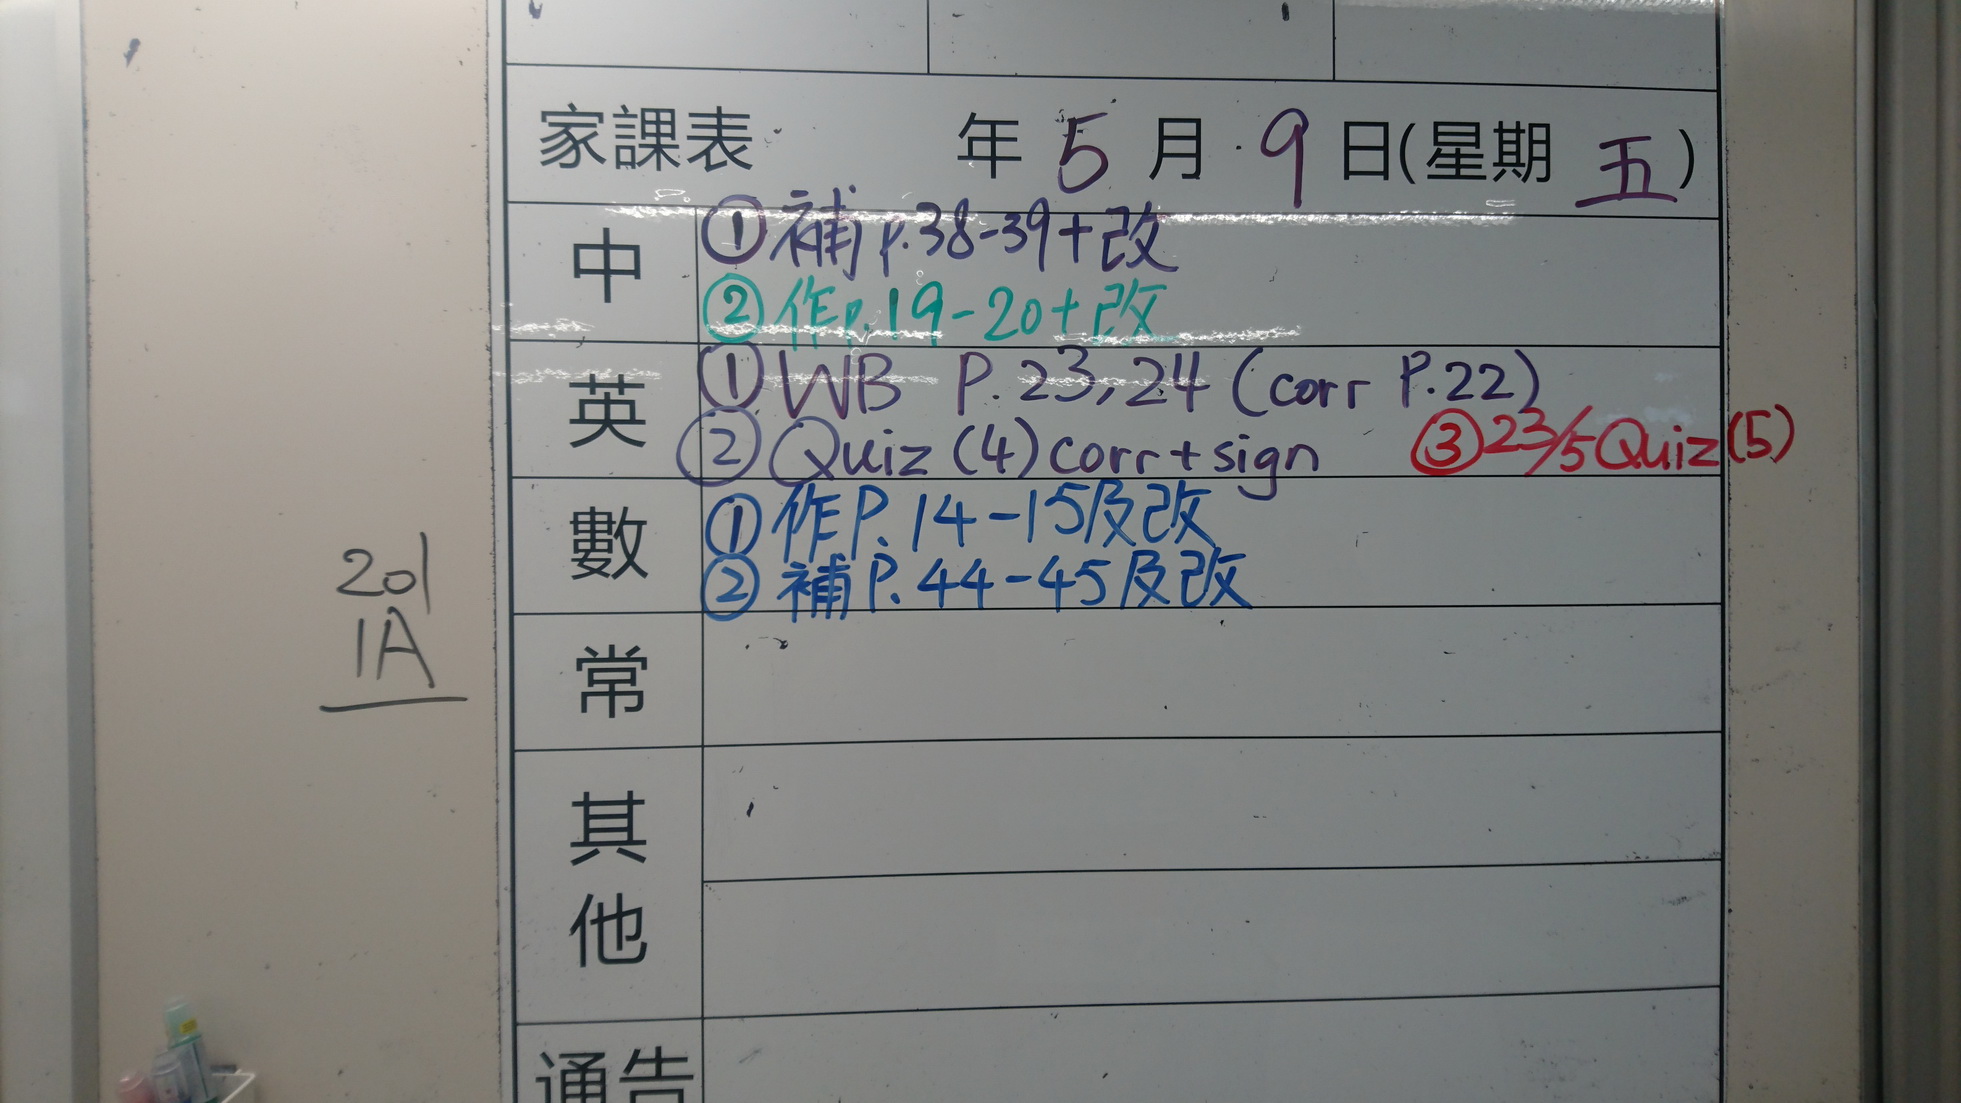 家課表 年 5 月 9 日(星期 五)
中
①補p.38-39+改
②作p.19-20+改
英
①WB P.23,24 (corr P.22)
②Quiz (4) corr+sign ③23/5Quiz(5)
數
①作P.14-15及改
②補P.44-45及改
201
1A
常
其他
通告